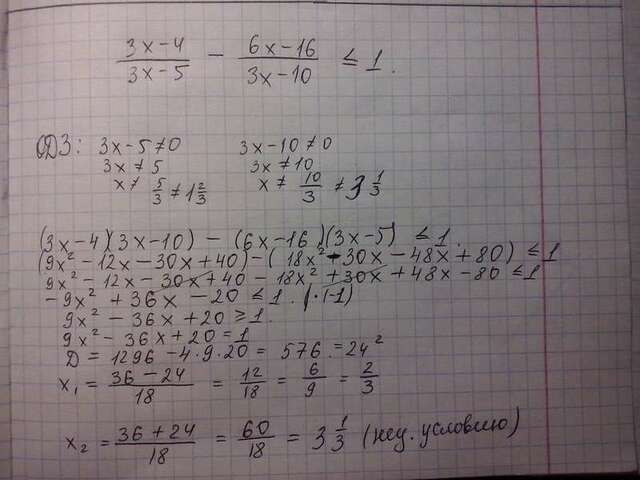 3x-4/3x-5 - 6x-16/3x-10 ≤ 1.
ОДЗ: 3x-5≠0 3x-10≠0
3x≠5 3x≠10
x≠ 5/3 ≠1 2/3 x≠ 10/3 ≠3 1/3
(3x-4)(3x-10) - (6x-16)(3x-5) ≤ 1.
(9x²-12x-30x+40)-(18x²-30x-48x+80) ≤ 1
9x²-12x-30x+40-18x²+30x+48x-80 ≤ 1
-9x²+36x-20 ≤ 1. |·(-1)
9x²-36x+20 ≥ 1.
9x²-36x+20=1
D = 1296-4·9·20 = 576.=24²
x₁ = 36-24/18 = 12/18 = 6/9 = 2/3
x₂ = 36+24/18 = 60/18 = 3 1/3 (неу. условию)